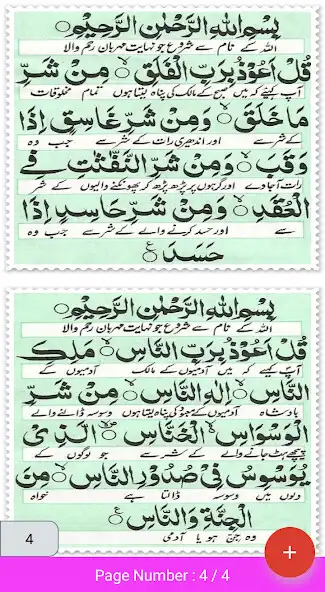 بِسْمِ اللهِ الرَّحْمٰنِ الرَّحِيْمِ
اللہ کے نام سے شروع جو نہایت مہربان رحم والا
قُلْ اَعُوْذُ بِرَبِّ الْفَلَقِ ۙ مِنْ شَرِّ
آپ کہیئے کہ میں صبح کے مالک کی پناہ لیتا ہوں تمام مخلوقات
مَا خَلَقَ ۙ وَمِنْ شَرِّ غَاسِقٍ اِذَا
کے شر سے اور اندھیری رات کے شر سے جب وہ
وَقَبَ ۙ وَمِنْ شَرِّ النَّفّٰثٰتِ فِي
رات آجاوے اور گرہوں پر پڑھ پڑھ کر پھونکنے والیوں کے شر
الْعُقَدِ ۙ وَمِنْ شَرِّ حَاسِدٍ اِذَا
سے اور حسد کرنے والے کے شر سے جب وہ
حَسَدَ ۧ
بِسْمِ اللهِ الرَّحْمٰنِ الرَّحِيْمِ
اللہ کے نام سے شروع جو نہایت مہربان رحم والا
قُلْ اَعُوْذُ بِرَبِّ النَّاسِ ۙ مَلِكِ
آپ کہیئے کہ میں آدمیوں کے مالک آدمیوں کے
النَّاسِ ۙ اِلٰهِ النَّاسِ ۙ مِنْ شَرِّ
بادشاہ آدمیوں کے معبود کی پناہ لیتا ہوں وسوسہ ڈالنے والے
الْوَسْوَاسِ ۙ الْخَنَّاسِ ۙ الَّذِيْ
پیچھے ہٹ جانے والے کے شر سے جو لوگوں کے
يُوَسْوِسُ فِيْ صُدُوْرِ النَّاسِ ۙ مِنَ
دلوں میں وسوسہ ڈالتا ہے خواہ
الْجِنَّةِ وَالنَّاسِ ۧ
وہ جن ہو یا آدمی
4
+
Page Number : 4 / 4